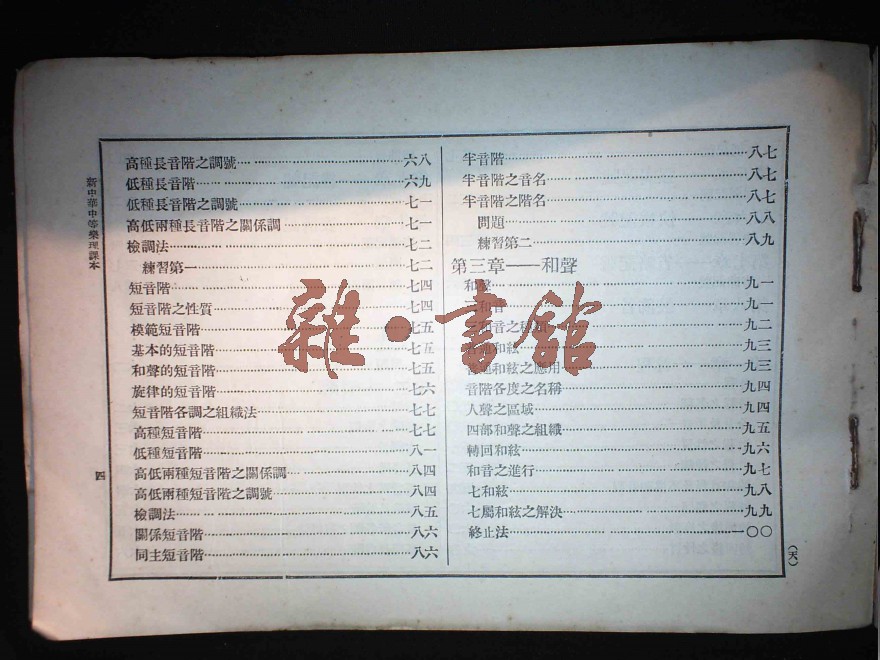 新中華中等樂理課本
四
高種長音階之調號 六八
低種長音階 六九
低種長音階之調號 七一
高低兩種長音階之關係調 七一
檢調法 七二
練習第一 七二
短音階 七四
短音階之性質 七四
模範短音階 七五
基本的短音階 七五
和聲的短音階 七五
旋律的短音階 七六
短音階各調之組織法 七七
高種短音階 七七
低種短音階 八一
高低兩種短音階之關係調 八四
高低兩種短音階之調號 八四
檢調法 八五
關係短音階 八六
同主短音階 八六
半音階 八七
半音階之音名 八七
半音階之階名 八七
問題 八八
練習第二 八九
第三章——和聲
和聲 九一
三和音 九一
三和音之種類 九二
普通和絃 九三
普通和絃之應用 九三
音階各度之名稱 九四
人聲之區域 九四
四部和聲之組織 九五
轉回和絃 九六
和音之進行 九七
七和絃 九八
七屬和絃之解決 九九
終止法 一〇〇
(天)
雜·書館